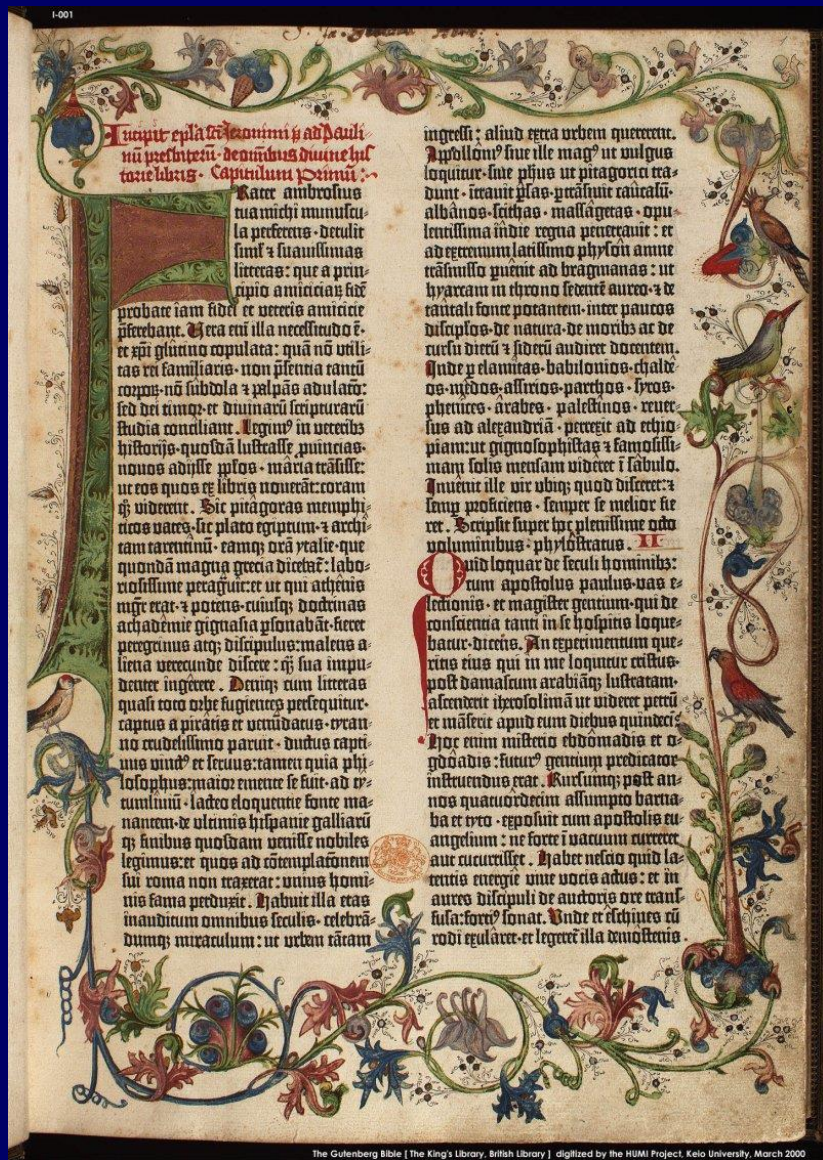 I-001
Incipit epl̄a sc̄i Jeronimi p̄ ad Pauli⸗
nū presbiterū · de om̄ibus diuine his
torie libris · Capitulum Primū :
Frater ambrosius
tua michi munuscu⸗
la perferens · detulit
simł ꝛ suauissimas
litteras : que a prin⸗
cipio amiciciaꝝ fidē
probate iam fidei et veteris amicicie
p̄ferebant . Uera em̄ illa necessitudo ē ·
et xp̄i glutino copulata : quā nō utili⸗
tas rei familiaris · non p̄sentia tantū
corpoꝝ · nō subdola ꝛ palpās adulatō :
sed dei timoꝛ · et diuinarū scripturarū
studia conciliant . Legimꝰ in veteribꝫ
historijs · quosdā lustrasse ꝓuincias ·
nouos adijsse pp̄los · maria trāsisse :
ut eos quos ex libris nouerāt : coram
qꝫ viderent . Sic pitagoras memphi⸗
ticos vates · sic plato egiptum · ꝛ archi⸗
tam tarentinū · eamqꝫ orā ytalie · que
quondā magna grecia dicebat̄ : labo⸗
riosissime peragrauit : et ut qui athenis
mgr̄ erat · ꝛ potens · cuiusqꝫ doctrinas
achademie gignasia ꝑsonabāt · fieret
peregrinus atqꝫ discipulus : malens a⸗
liena verecunde discere : qͣꝫ sua impu⸗
denter ingerere . Deniqꝫ cum litteras
quasi toto orbe fugientes persequitur ·
captus a piratis et venūdatus · tyran⸗
no crudelissimo paruit · ductus capti⸗
uus vinctꝰ et seruus : tamen quia phi⸗
losophus : maior emente se fuit · ad ty⸗
tumliuiū · lacteo eloquentie fonte ma⸗
nantem · de vltimis hispanie galliarū
qꝫ finibus quosdam venisse nobiles
legimus : et quos ad cōtemplatōnem
sui roma non traxerat : unius homi⸗
nis fama perduxit . Habuit illa etas
inauditum omnibus seculis · celebrā⸗
dumqꝫ miraculum : ut vrbem tātam
ingressi : aliud extra vrbem quererent.
Appollonꝰ siue ille magꝰ ut vulgus
loquitur · siue ph̄us ut pitagorici tra⸗
dunt · ītrauit ꝑsas · ꝑtrāsiuit caucasū ·
albanos · scithas · massagetas · opu⸗
lentissima indie regna penetrauit : et
ad extremum latissimo physon amne
trāsmisso ꝑuenit ad bragmanas : ut
hyarcam in throno sedentē aureo · ꝛ de
tantali fonte potantem · inter paucos
discipl̄os · de natura · de moribꝫ ac de
cursu dierū ꝛ siderū audiret docentem.
Inde ꝑ elamitas · babilonios · chalde⸗
os · medos · assirios · parthos · syros ·
phenices · arabes · palestinos · reuer⸗
sus ad alexandriā · perrexit ad ethio⸗
piam : ut gignosophistas ꝛ famosissi⸗
mam solis mensam videret ī sabulo.
Inuenit ille vir vbiqꝫ quod disceret : ꝛ
semꝑ proficiens · semper se melior fie
ret . Scripsit super hoc plenissime octo
voluminibus · phylostratus . II
Quid loquar de seculi hominibꝫ :
cum apostolus paulus · vas e⸗
lectionis · et magister gentium · qui de
conscientia tanti in se hospitis loque⸗
batur · dicens . An experimentum que⸗
ritis eius qui in me loquitur cristus ·
post damascum arabiāqꝫ lustratam ·
ascenderit iherosolimā ut videret petrū
et māserit apud eum diebus quindeci⸗
Hoc enim misterio ebdomadis et o⸗
gdoadis : futurꝰ gentium predicator
instruendus erat . Rursumqꝫ post an⸗
nos quatuordecim assumpto barna⸗
ba et tyto · exposuit cum apostolis eu⸗
angelium : ne forte ī vacuum curreret
aut cucurrisset . Habet nescio quid la⸗
tentis energie viue vocis actus : et in
aures discipuli de auctoris ore trans⸗
fusa : fortiꝰ sonat . Unde et eschines cū
rodi exularet · et legeret̄ illa demostenis .
The Gutenberg Bible [ The King's Library, British Library ] digitized by the HUMI Project, Keio University, March 2000